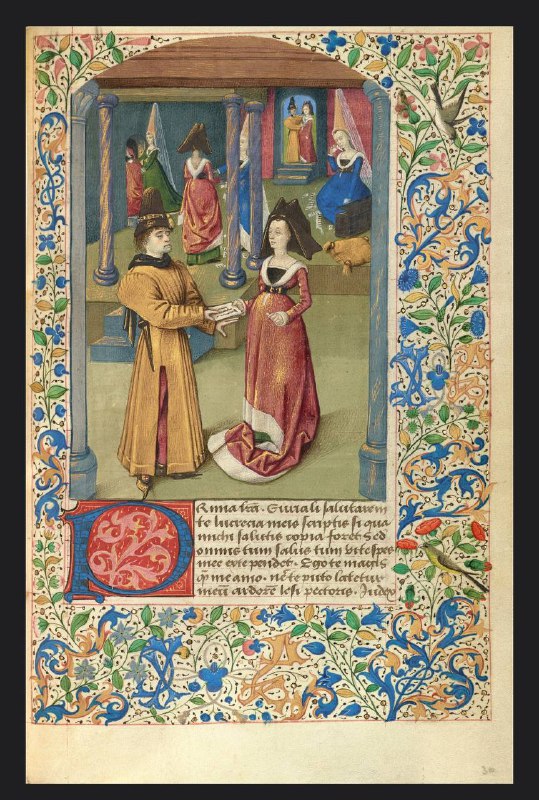 PRima lrā. Euriali salutarem
te lucrecia meis scriptis si qua
michi salutis copia foret Sed
omnis tum salus tum vite spes
mee ex te pendet. Ego te magis
q̄ me amo. nec te puto
meū ardorē lesi pectoris. Iudex